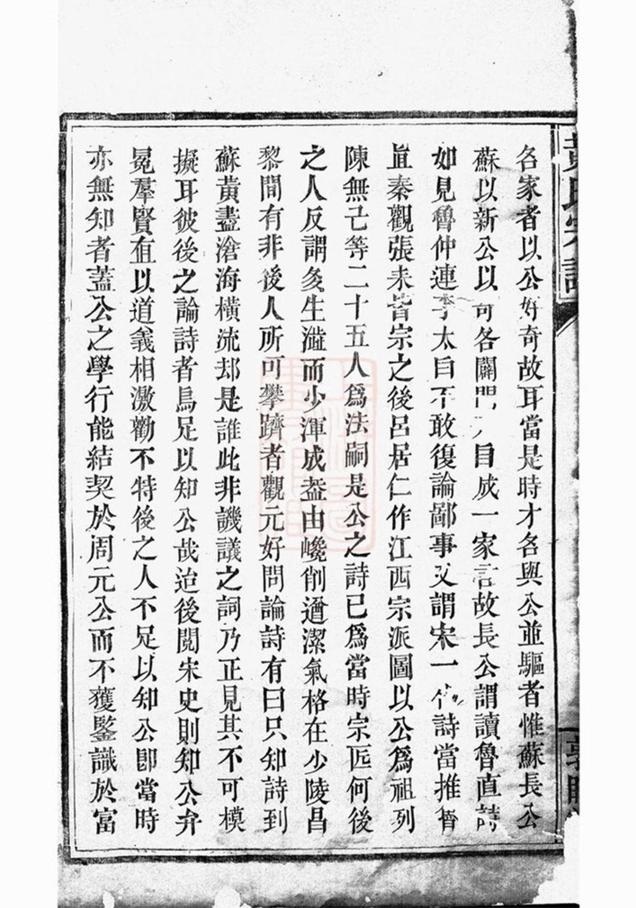 各家者以公好奇故耳當是時才各與公並驅者惟蘇長公
蘇以新公以奇各闢門人自成一家言故長公謂讀魯直詩
如見魯仲連李太白不敢復論鄙事又謂宋一代詩當推魯
直秦觀張耒皆宗之後呂居仁作江西宗派圖以公為祖列
陳無己等二十五人為法嗣是公之詩已為當時宗匠何後
之人反謂多生澁而少渾成葢由巉削遒潔氣格在少陵昌
黎間有非後人所可攀躋者觀元好問論詩有曰只知詩到
蘇黃盡滄海橫流却是誰此非譏議之詞乃正見其不可模
擬耳彼後之論詩者烏足以知公哉迨後閱宋史則知公弁
冕羣賢直以道義相激勸不特後之人不足以知公卽當時
亦無知者蓋公之學行能結契於周元公而不獲鑒識於富
黃氏宗譜